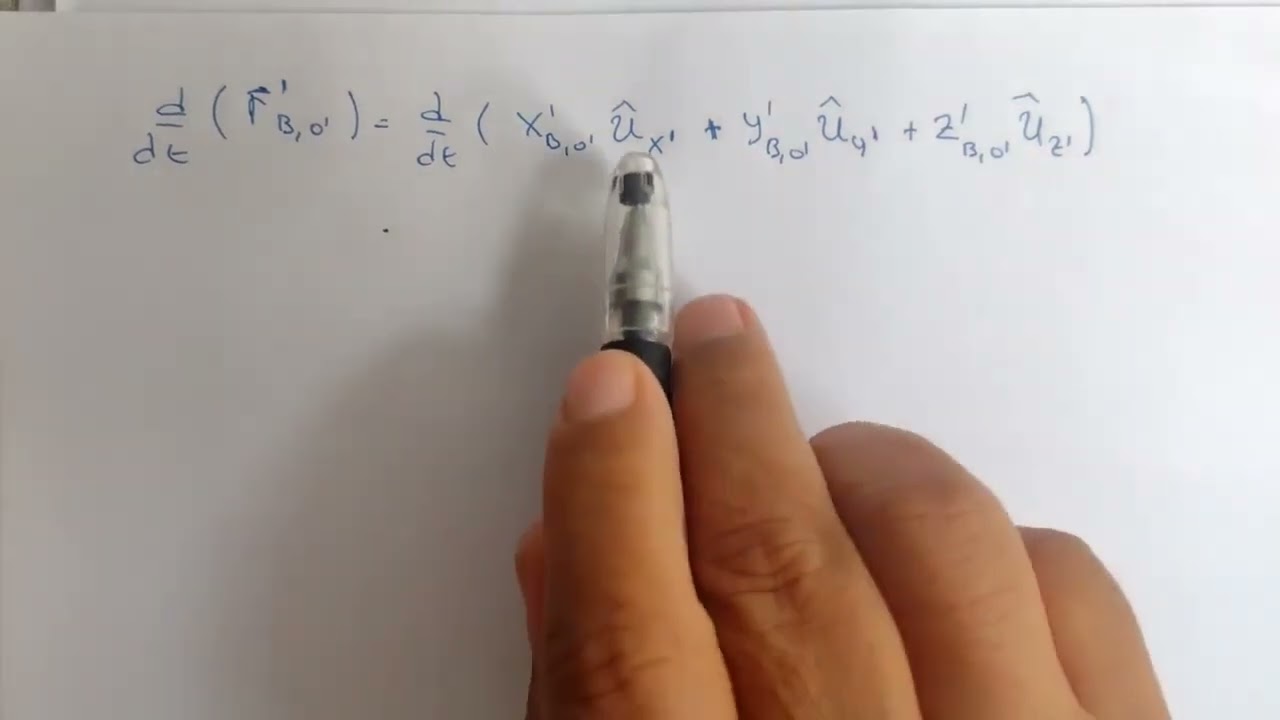 d/dt ( r⃗'_{B,O'} ) = d/dt ( x'_{B,O'} û_{x'} + y'_{B,O'} û_{y'} + z'_{B,O'} û_{z'} )